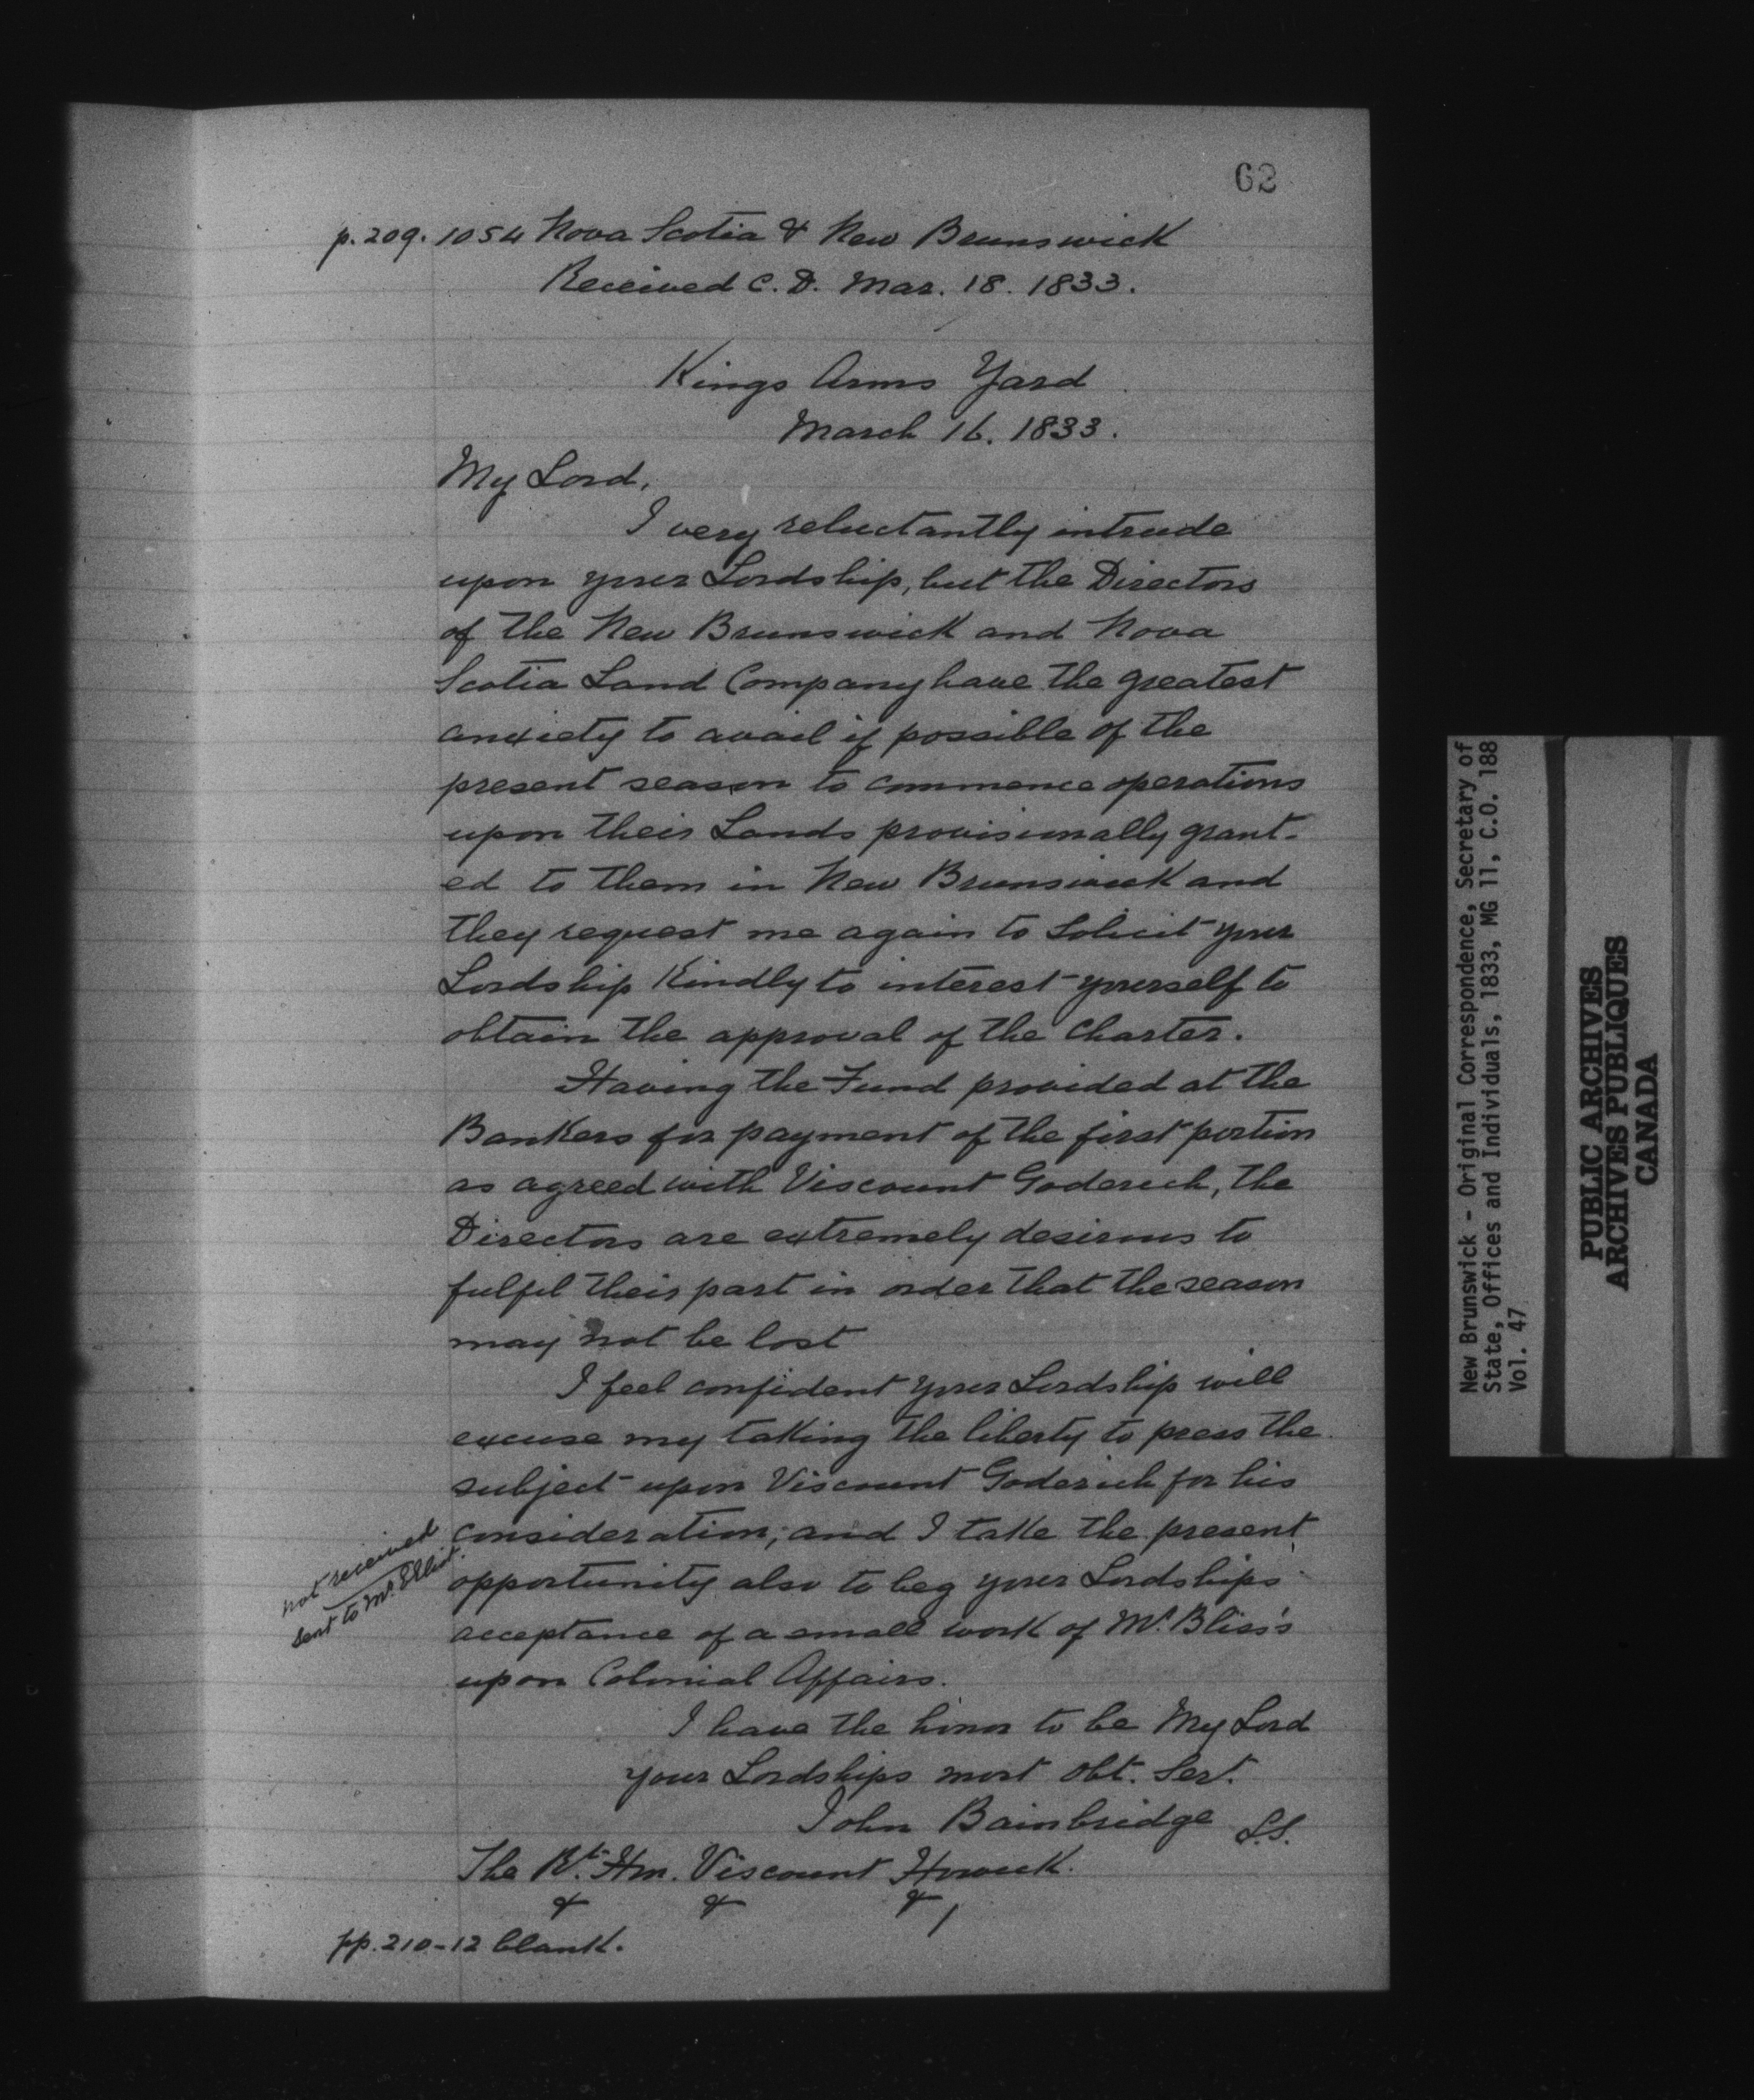 62
p. 209. 1054 Nova Scotia & New Brunswick
Received C. D. Mar. 18. 1833.
Kings Arms Yard
March 16. 1833.
My Lord,
I very reluctantly intrude
upon your Lordship, but the Directors
of the New Brunswick and Nova
Scotia Land Company have the greatest
anxiety to avail if possible of the
present season to commence operations
upon their Lands provisionally grant-
ed to them in New Brunswick and
they request me again to solicit your
Lordship Kindly to interest yourself to
obtain the approval of the Charter.
Having the Fund provided at the
Bankers for payment of the first portion
as agreed with Viscount Goderich, the
Directors are extremely desirous to
fulfil their part in order that the season
may not be lost
I feel confident your Lordship will
excuse my taking the liberty to press the
subject upon Viscount Goderich for his
consideration; and I take the present
opportunity also to beg your Lordships
acceptance of a small work of Mr. Bliss's
upon Colonial Affairs.
not received
sent to Mr. Elliot.
I have the honor to be My Lord
your Lordships most obt. Sert.
John Bainbridge L.S.
The Rt. Hon. Viscount Howick.
& & &
pp. 210-12 blank.
New Brunswick - Original Correspondence, Secretary of
State, Offices and Individuals, 1833, MG 11, C.O. 188
Vol. 47
PUBLIC ARCHIVES
ARCHIVES PUBLIQUES
CANADA